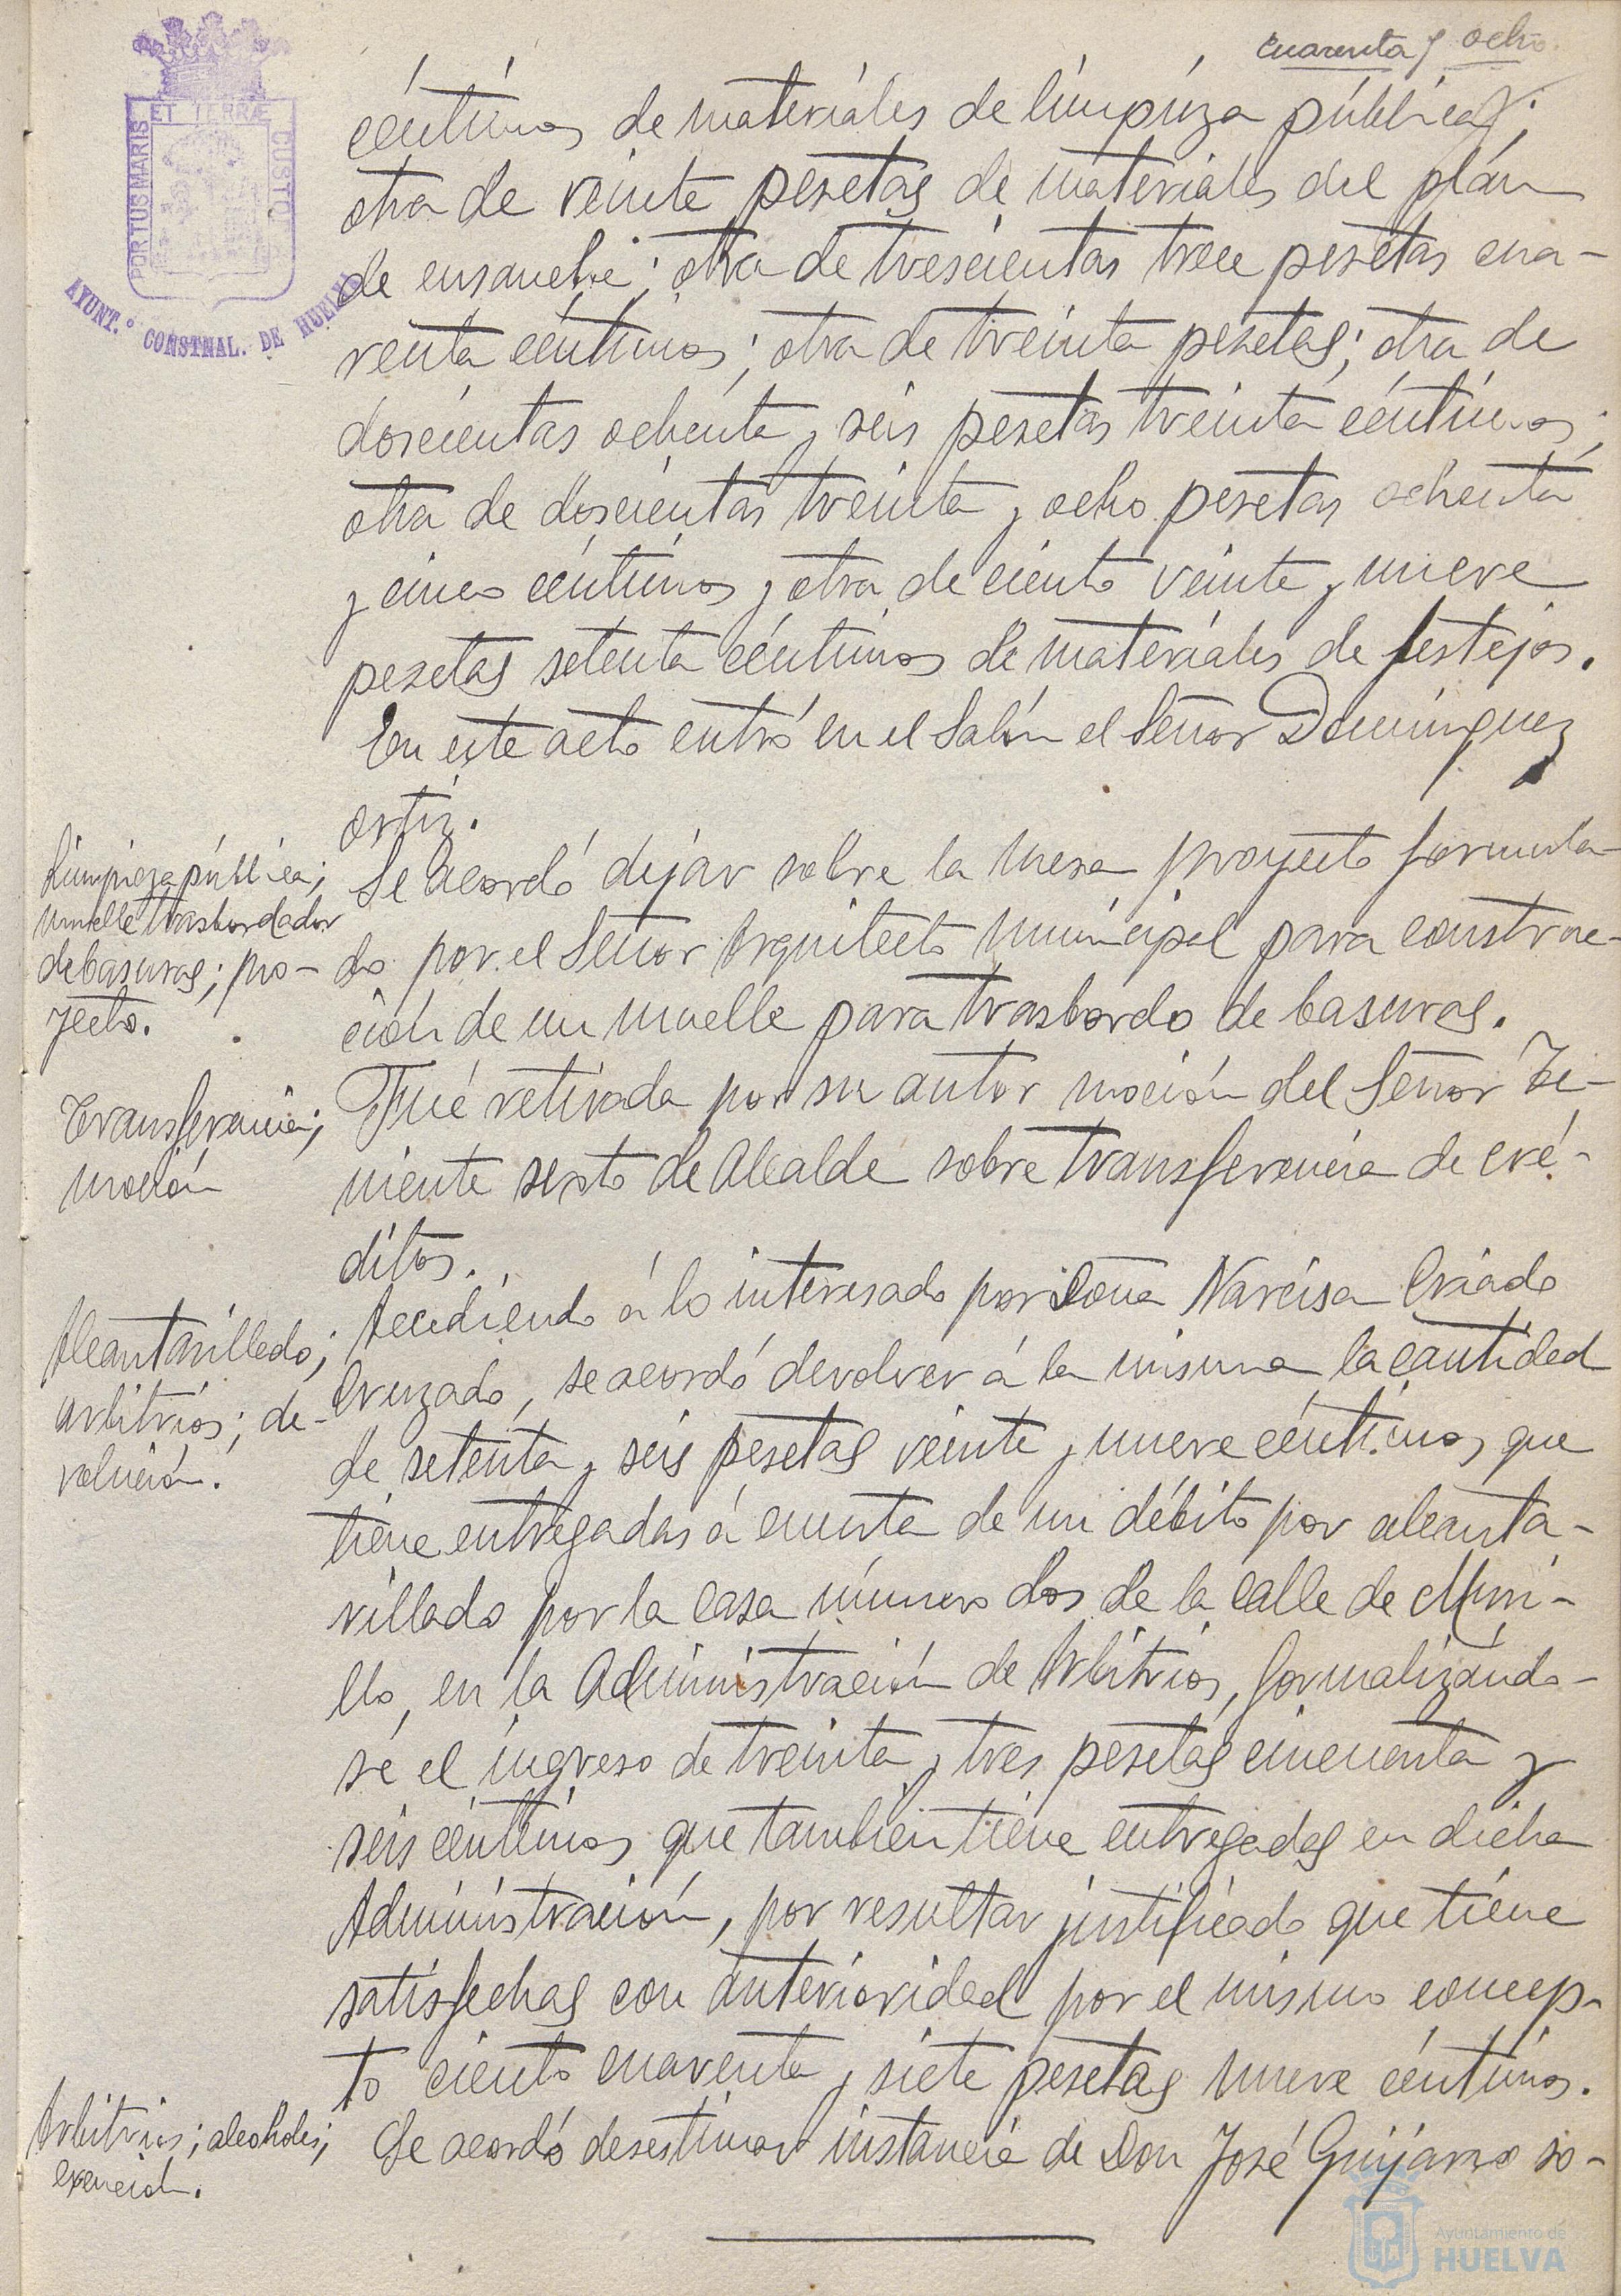 cuarenta y ocho.
ET TERRÆ
PORTUS MARIS
CUSTO
AYUNT.º CONSTNAL. DE HUELVA
céntimos de materiales de limpieza pública;
otra de veinte pesetas de materiales del plan
de ensanche; otra de trescientas trece pesetas cua-
renta céntimos; otra de treinta pesetas; otra de
doscientas ochenta y seis pesetas treinta céntimos;
otra de doscientas treinta y ocho pesetas ochenta
y cinco céntimos y otra de ciento veinte y nueve
pesetas setenta céntimos de materiales de festejos.
En este acto entró en el Salón el Señor Domínguez
Ortiz.
Limpieza pública;
muelle trasbordador
de basuras; pro-
yecto.
Se acordó dejar sobre la mesa proyecto formula-
do por el Señor Arquitecto municipal para construc-
ción de un muelle para trasbordo de basuras.
Transferencia;
moción
Fué retirada por su autor moción del Señor Te-
niente sexto de Alcalde sobre transferencia de cré-
ditos.
Alcantarillado;
arbitrios; de-
volución.
Accediendo á lo interesado por Doña Narcisa Criado
Cruzado, se acordó devolver á la misma la cantidad
de setenta y seis pesetas veinte y nueve céntimos que
tiene entregadas á cuenta de un débito por alcanta-
rillado por la casa número dos de la calle de Muri-
llo, en la Administración de Arbitrios, formalizándo-
se el ingreso de treinta y tres pesetas cincuenta y
seis céntimos que también tiene entregadas en dicha
Administración, por resultar justificado que tiene
satisfechas con anterioridad por el mismo concep-
to ciento cuarenta y siete pesetas nueve céntimos.
Arbitrios; alcoholes;
exención.
Se acordó desestimar instancia de Don José Guijarro so-
Ayuntamiento de
HUELVA